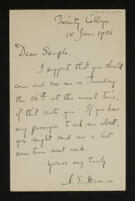 Trinity College
14 Jan. 1926
Dear Semple,
I suggest that you should
come and see me on Tuesday
the 26th at the usual time,
if that suits you. If you have
any passages to ask me about,
you might send me a list
some time next week.
Yours very truly
A. E. Housman